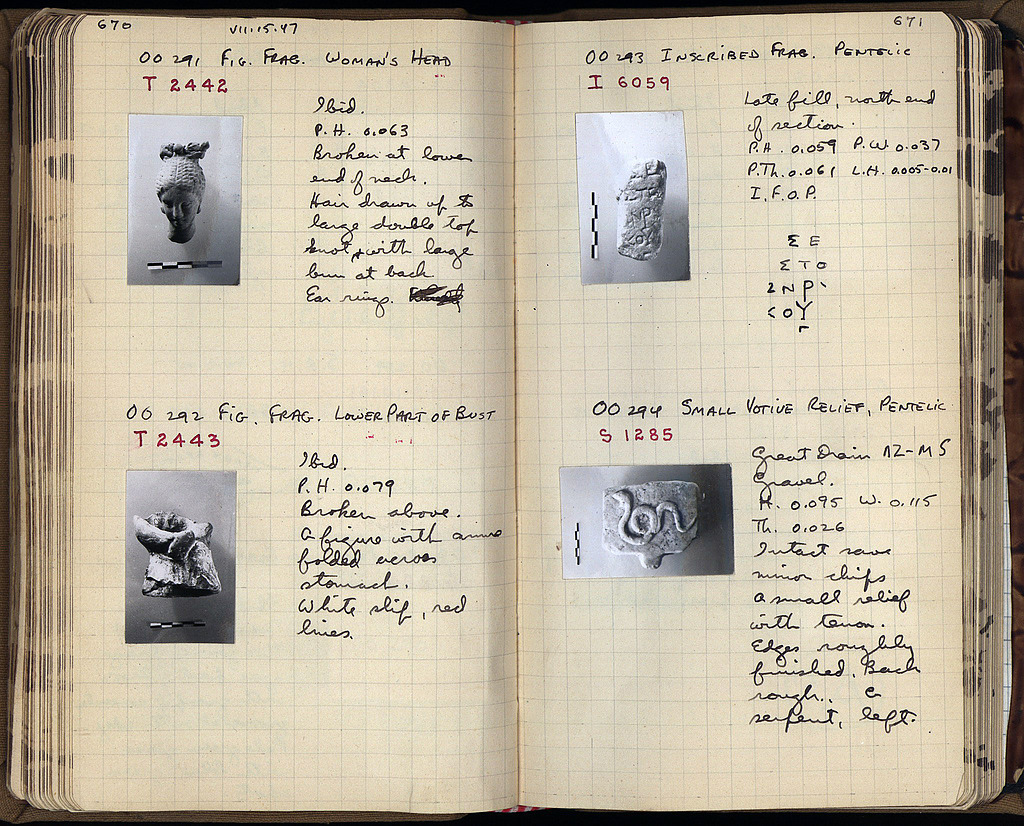 670
VII·15·47
OO 291 FIG. FRAG. WOMAN'S HEAD
T 2442
Ibid.
P.H. 0.063
Broken at lower
end of neck.
Hair drawn up to
large double top
knot, with large
bun at back
Ear rings.
OO 292 FIG. FRAG. LOWER PART OF BUST
T 2443
Ibid.
P.H. 0.079
Broken above.
A figure with arms
folded across
stomach.
White slip, red
lines.
671
OO 293 INSCRIBED FRAG. PENTELIC
I 6059
Late fill, north end
of section.
P.H. 0.059 P.W. 0.037
P.Th. 0.061 L.H. 0.005-0.01
I.F.O.P.
Σ Ε
Σ Τ Ο
Ν Ρ
Ο Υ
OO 294 SMALL VOTIVE RELIEF, PENTELIC
S 1285
Great Drain
Gravel.
H. 0.095 W. 0.115
Th. 0.026
Intact save
minor chips
A small relief
with tenon.
Edges roughly
finished. Back
rough. A
serpent, left.